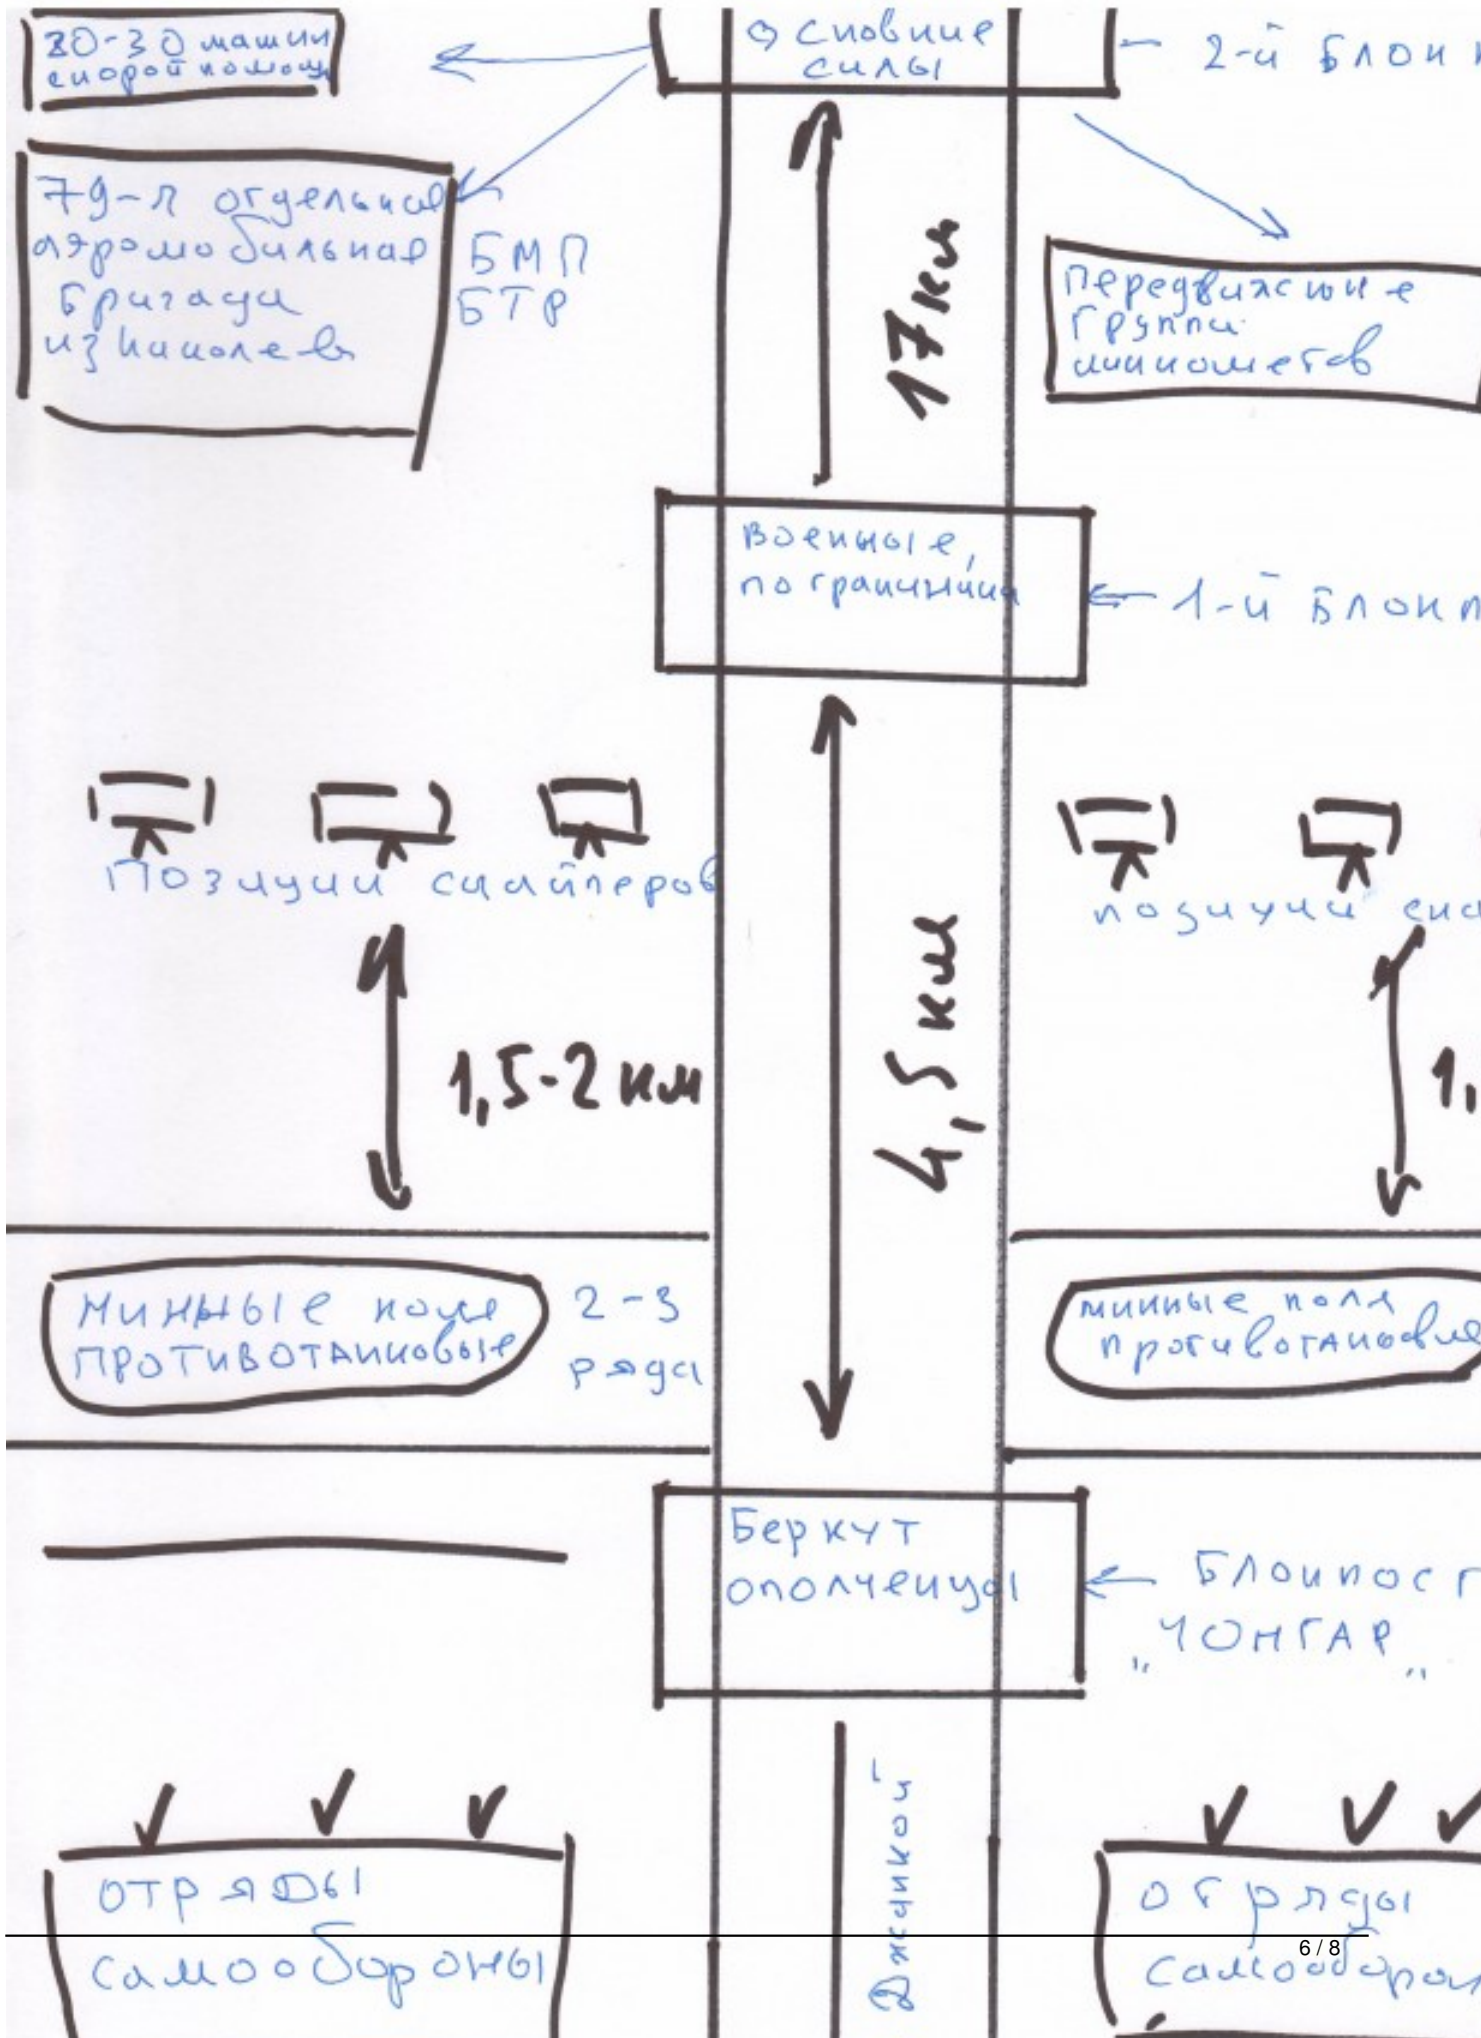 20-30 машин
скорой помощ
основные
силы
2-й Блок
79-я отдельная
аэромобильная
Бригада
из Николаева
БМП
БТР
17 км
передвижные
группы
минометов
военные,
пограничники
1-й Блокп
Позиции снайперов
позиции сна
1,5-2 км
4,5 км
1,
минные поля
противотанковые
2-3
ряда
минные поля
противотанковые
Беркут
ополченцы
Блокпост
"ЧОНГАР"
Джанкой
отряды
самообороны
отряды
самооборон
6 / 8